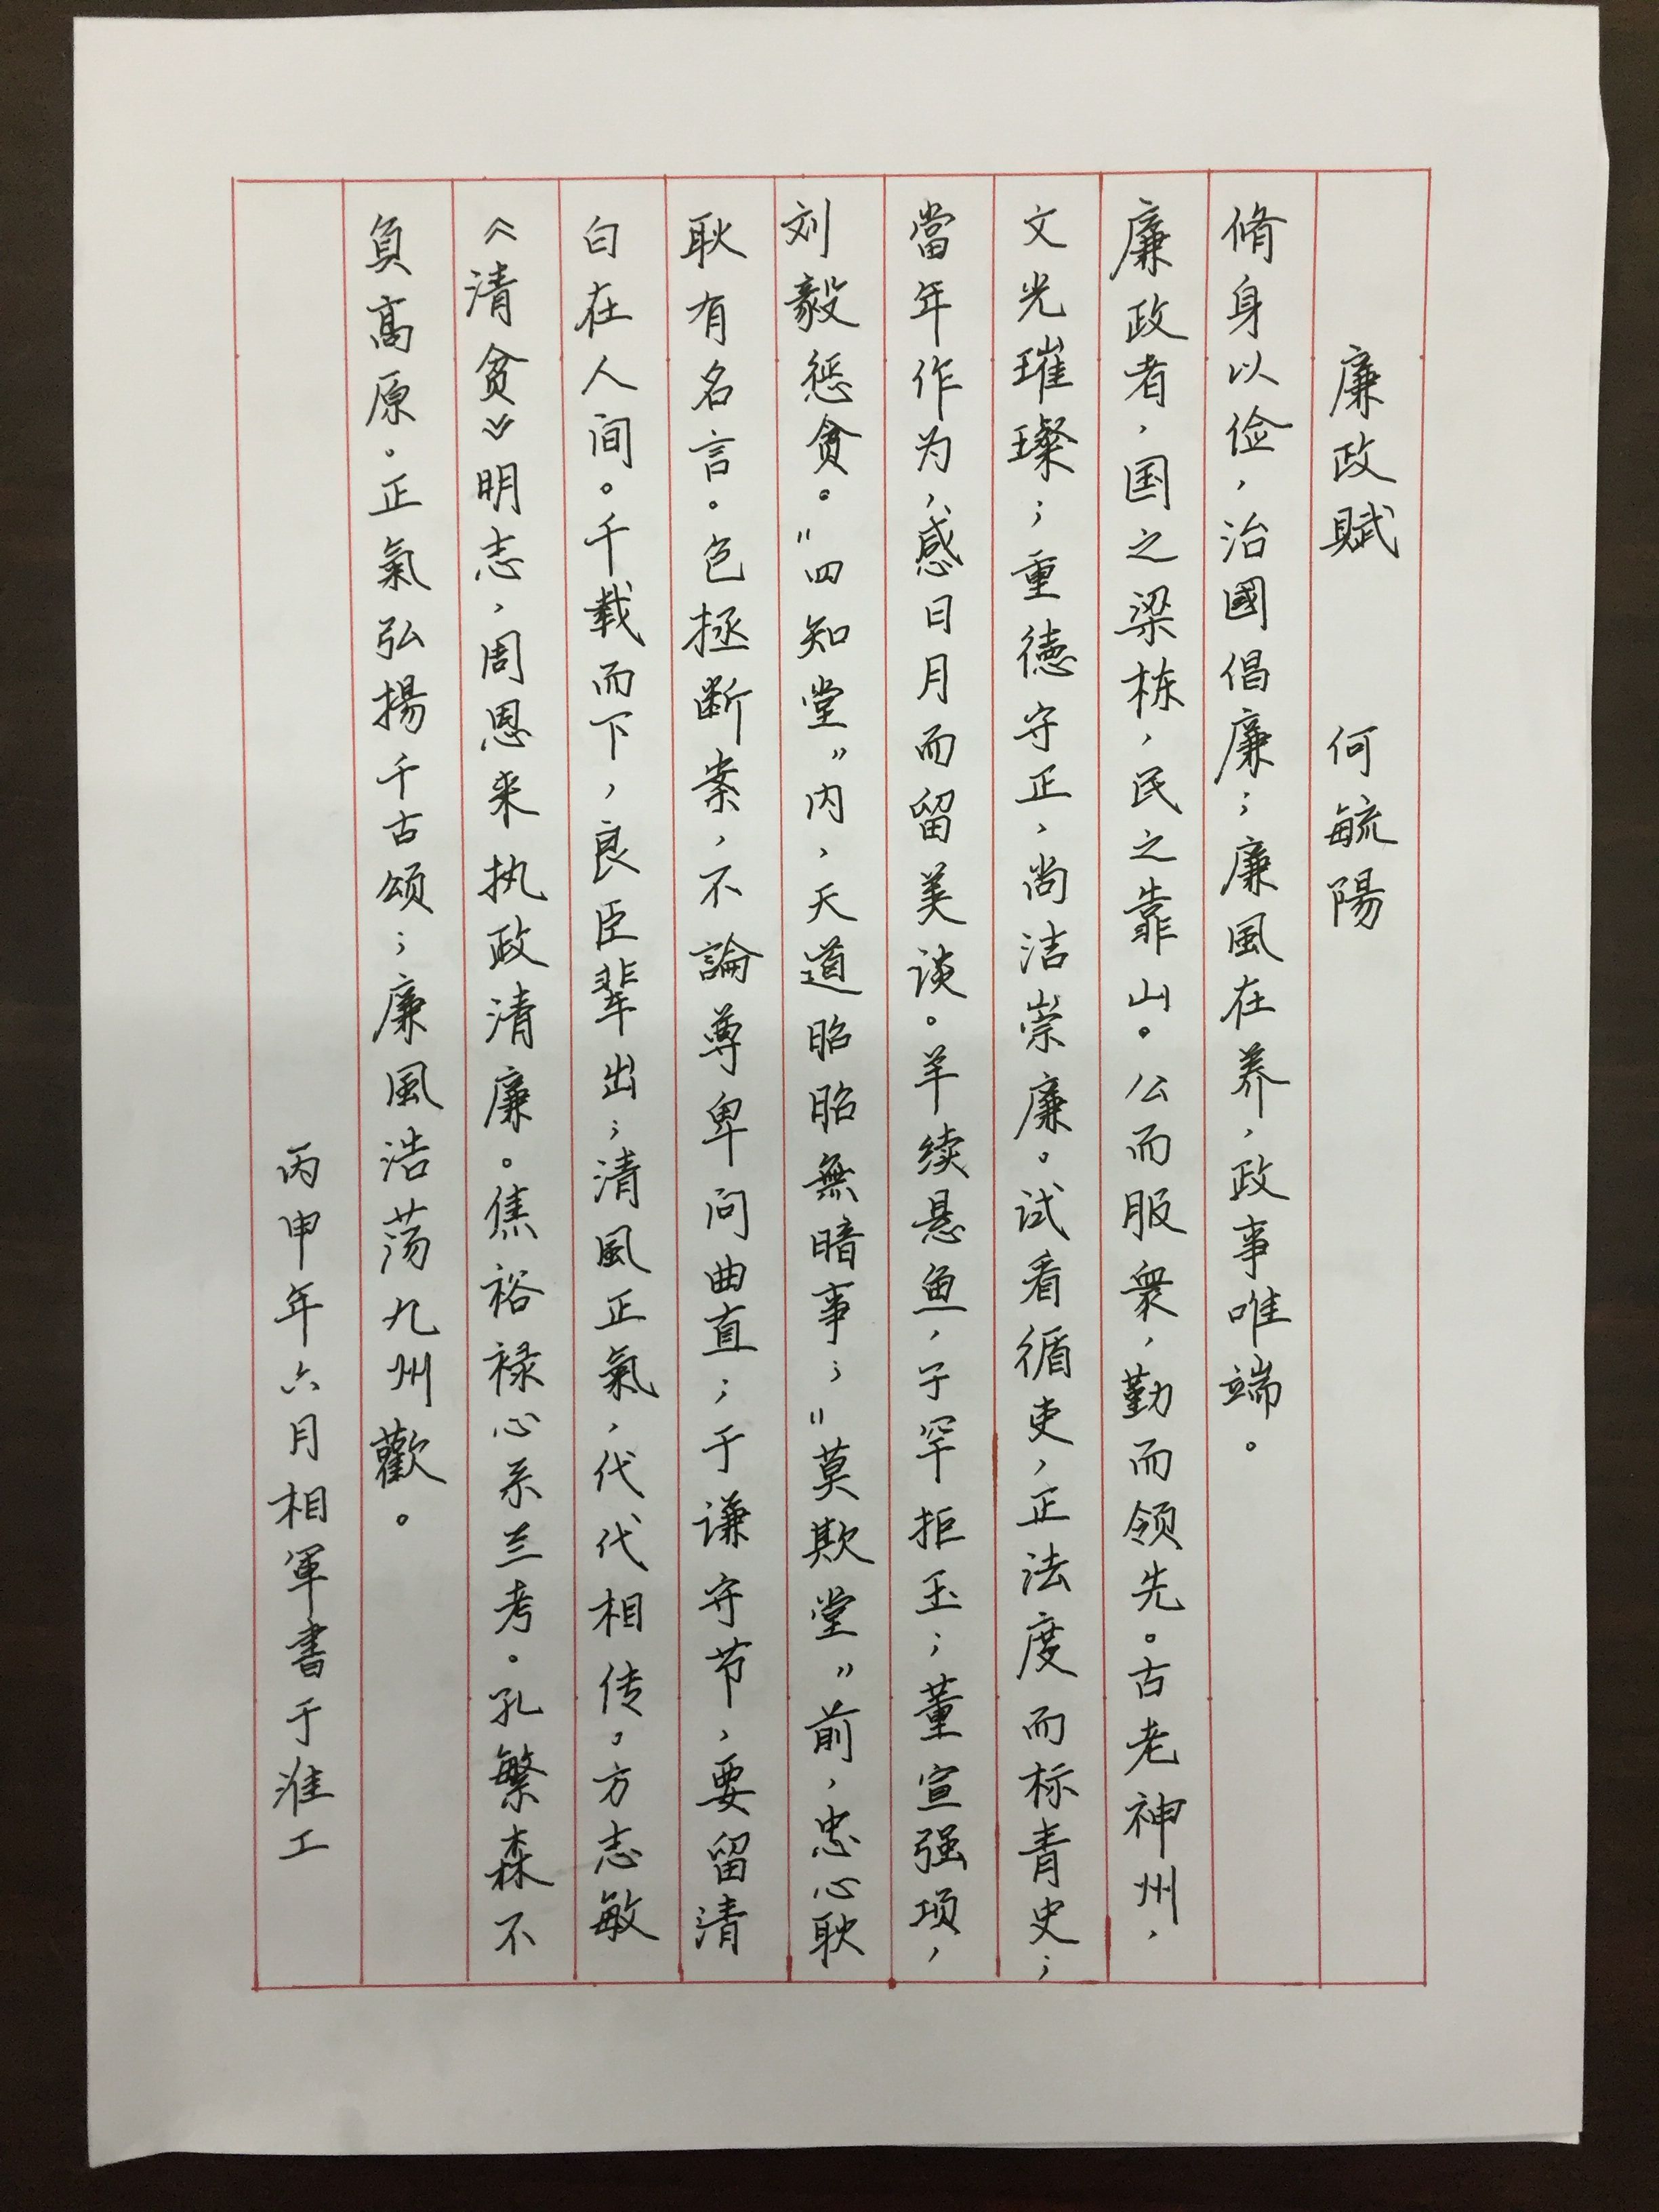 廉政賦 何毓陽
脩身以俭，治國倡廉；廉風在养，政事唯端。
廉政者，国之梁栋，民之靠山。公而服衆，勤而领先。古老神州，
文光璀璨；重德守正，尚洁崇廉。试看循吏，正法度而标青史；
當年作为，感日月而留美谈。羊续悬鱼，子罕拒玉；董宣强项，
刘毅惩贪。“四知堂”内，天道昭昭無暗事；“莫欺堂”前，忠心耿
耿有名言。包拯断案，不論尊卑问曲直；于谦守节，要留清
白在人间。千载而下，良臣辈出；清風正氣，代代相传。方志敏
《清贫》明志，周恩来执政清廉。焦裕禄心系兰考。孔繁森不
負高原。正氣弘揚千古颂；廉風浩荡九州歡。
丙申年六月相軍書于淮工